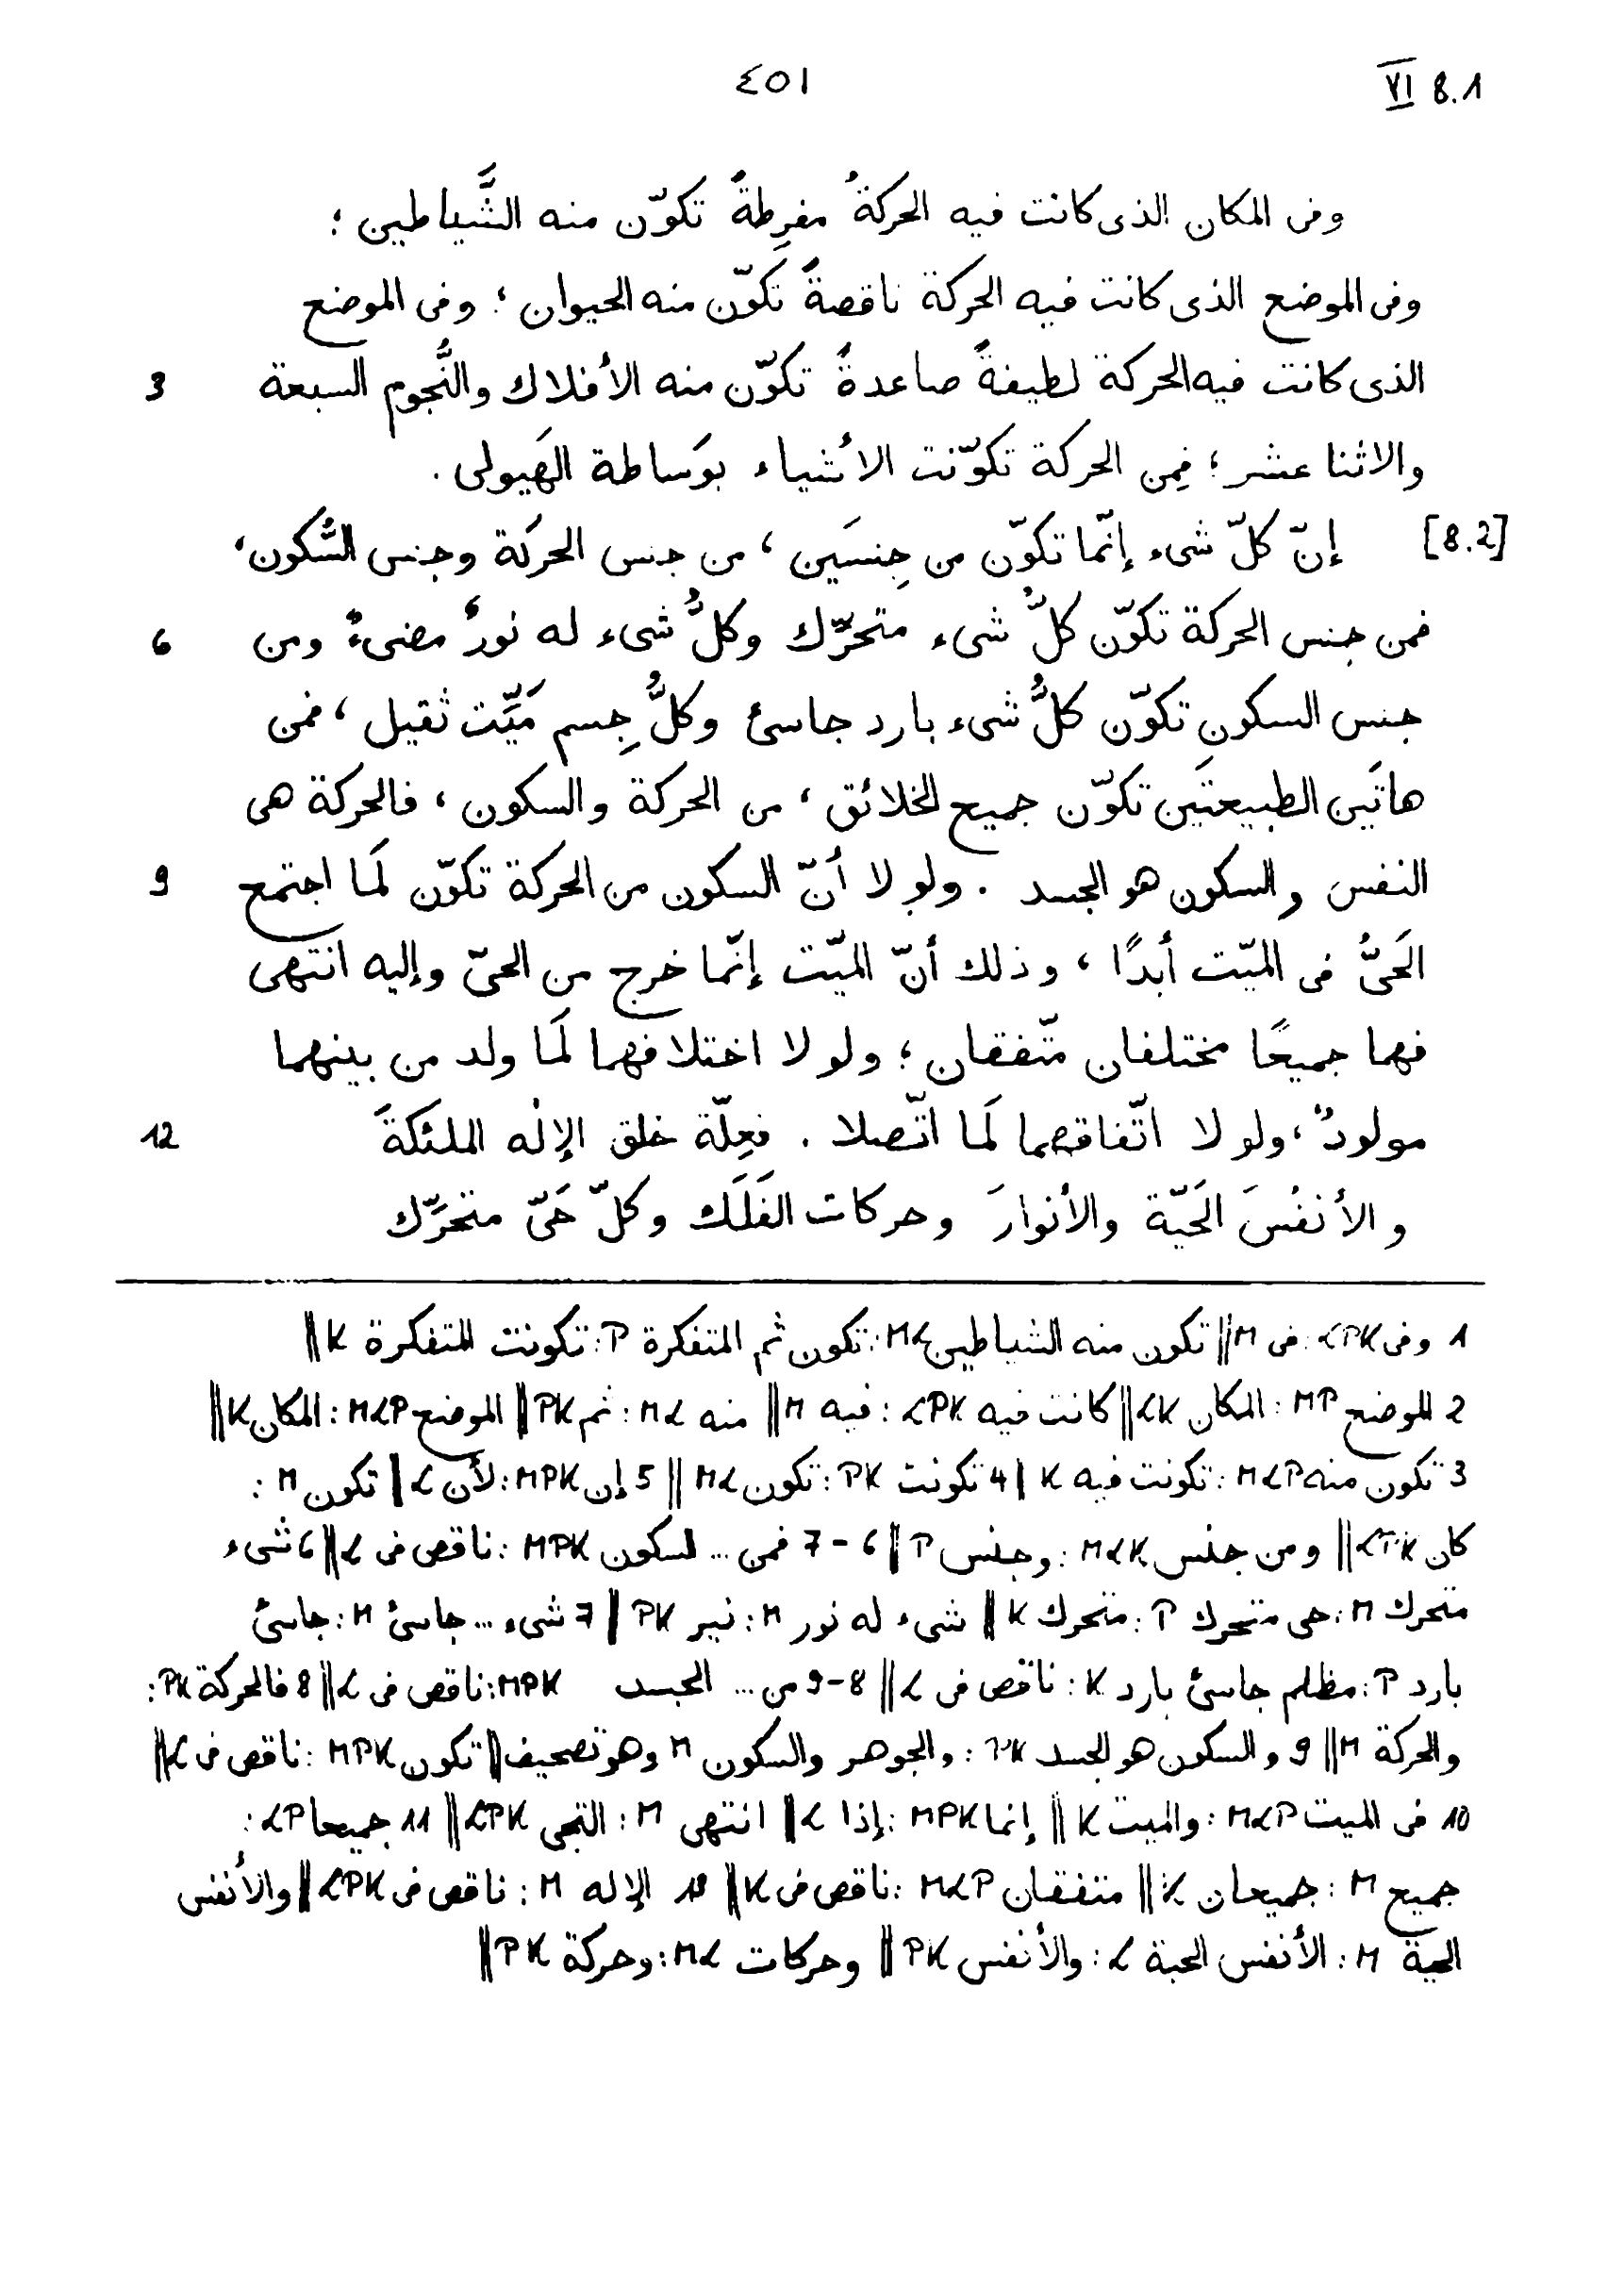 ٤٥١
VI 8.1
وفى المكان الذى كانت فيه الحركةُ مفرِطةً تكوّن منه الشَّياطين ؛
وفى الموضع الذى كانت فيه الحركة ناقصةً تكوّن منه الحيوان ؛ وفى الموضع
3 الذى كانت فيه الحركة لطيفةً صاعدةً تكوّن منه الأفلاك والنُّجوم السبعة
والاثنا عشر ؛ فمِن الحركة تكوّنت الأشياء بوَساطة الهَيولى .
[8.2] إنّ كلّ شىء إنّما تكوّن من جِنسَين ، من جنس الحركَة وجنس السُّكون ،
6 فمن جنس الحركة تكوّن كلُّ شىء متحرّك وكلُّ شىء له نورٌ مضىءٌ ومن
جنس السكون تكوّن كلُّ شىء بارد جاسئ وكلُّ جِسم مَيِّت ثقيل ، فمن
هاتَين الطبيعتَين تكوّن جميع الخلائق ، من الحركة والسكون ، فالحركة هى
9 النفس والسكون هو الجسد . ولولا أنّ السكون من الحركة تكوّن لَما اجتمع
الحَىُّ فى الميّت أبدًا ، وذلك أنّ الميّت إنّما خرج من الحىّ وإليه انتهى
فهما جميعًا مختلفان متّفقان ؛ ولولا اختلافهما لَما ولد من بينهما
12 مولودٌ ، ولولا اتّفاقهما لَما اتّصلا . فعِلّة خلق الإلٰه الملئكةَ
والأنفُسَ الحَيّة والأنوارَ وحركات الفَلَك وكلّ حَىّ متحرِّك
1 وفى LPK : فى M || تكون منه الشياطين ML : تكون ثم المتفكرة P : تكونت المتفكرة K ||
2 الموضع MP : المكان LK || كانت فيه LPK : فيه M || منه ML : ثم PK || الموضع MLP : المكان K ||
3 تكون منه MLP : تكونت فيه K || 4 تكونت PK : تكون ML || 5 إن MPK : لأن L || تكون M :
كان LPK || ومن جنس MLK : وجنس P || 6 - 7 فمن ... السكون MPK : ناقص فى L || 6 شىء
متحرك M : حى متحرك P : متحرك K || شىء له نور M : نير PK || 7 شىء ... جاسئ M : جاسئ
بارد P : مظلم جاسئ بارد K : ناقص فى L || 8-9 من ... الجسد MPK : ناقص فى L || 8 فالحركة PK :
والحركة M || 9 والسكون هو الجسد PK : والجوهر والسكون M وهو تصحيف || تكون MPK : ناقص فى L ||
10 فى الميت MLP : والميت K || إنما MPK : إذا L || انتهى M : التجى LPK || 11 جميعا LP :
جميع M : جميعان K || متفقان MLP : ناقص فى K || 13 الإله M : ناقص فى LPK || والأنفس
الحية M : الأنفس الحية L : والأنفس PK || وحركات ML : وحركة PK ||